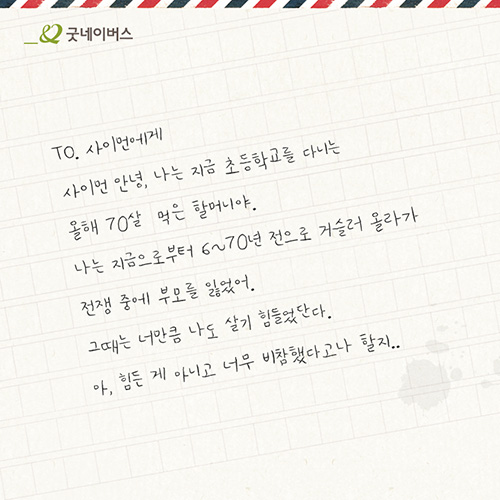 굿네이버스
TO. 사이먼에게
사이먼 안녕, 나는 지금 초등학교를 다니는
올해 70살 먹은 할머니야.
나는 지금으로부터 6~70년 전으로 거슬러 올라가
전쟁 중에 부모를 잃었어.
그때는 너만큼 나도 살기 힘들었단다.
아, 힘든 게 아니고 너무 비참했다고나 할지..